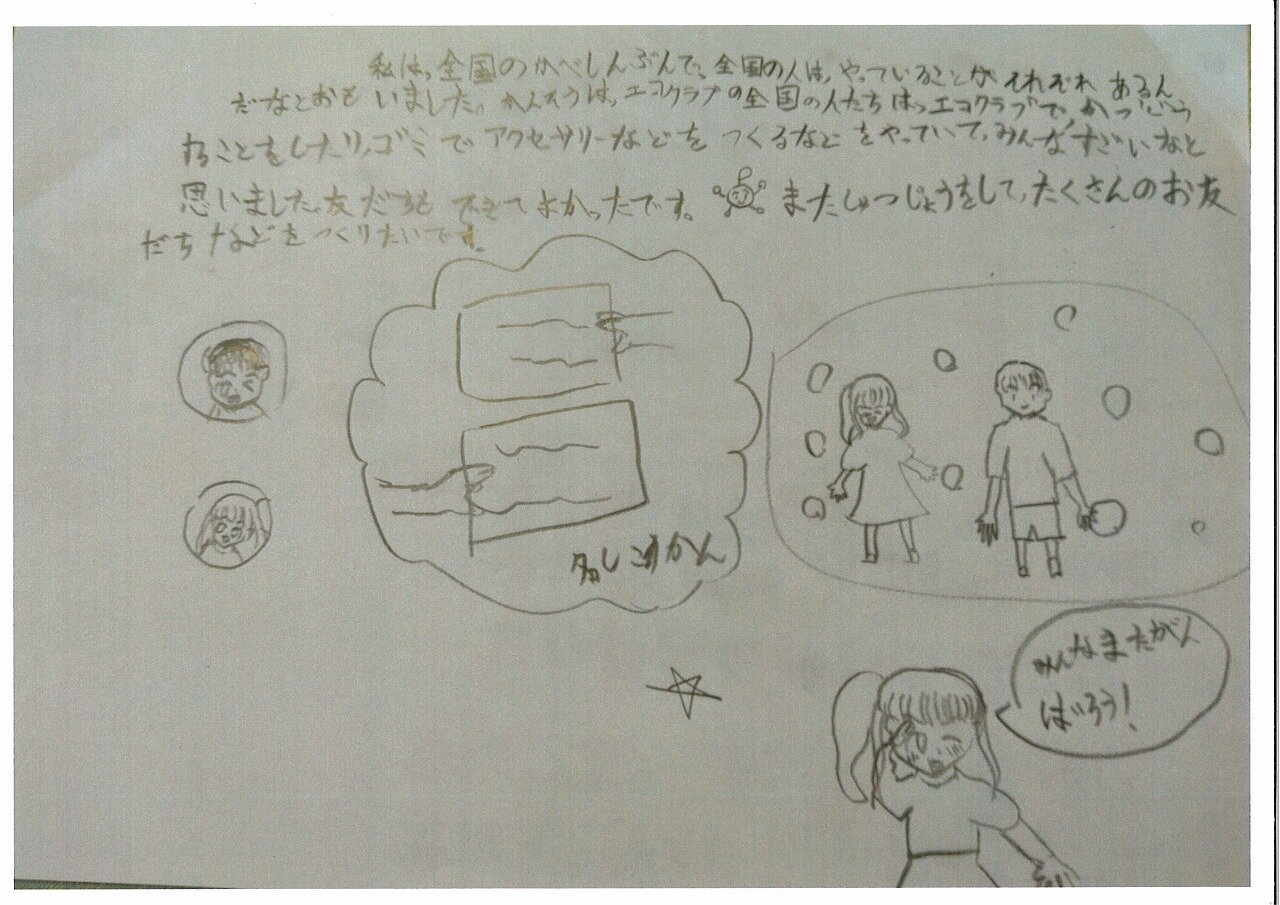 私は、全国のかべしんぶんで、全国の人は、やっていることがそれぞれあるん
だなとおもいました。かんそうは、エコクラブの全国の人たちは、エコクラブで、かつどう
することをしたり、ゴミでアクセサリーなどをつくるなどをやっていて、みんなすごいなと
思いました。友だちもできてよかったです。またしゅつじょうをして、たくさんのお友
だちなどをつくりたいです。
名しこうかん
みんなまたがん
ばろう!